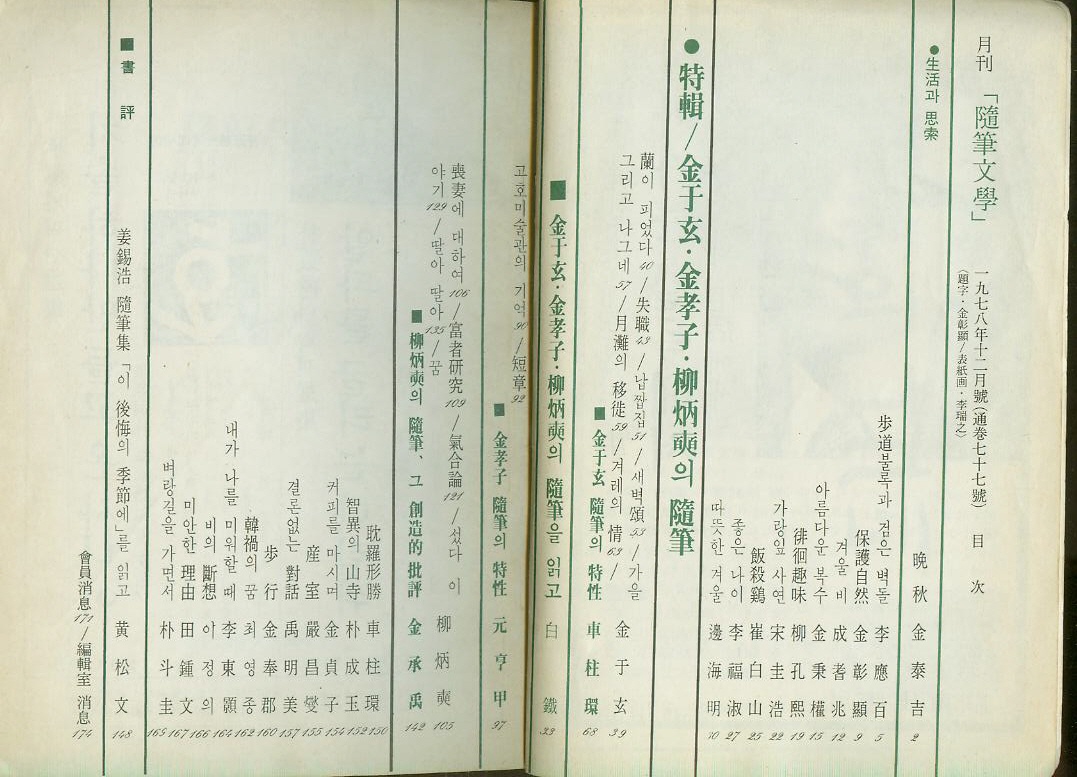 月刊 「隨筆文學」 一九七八年十二月號(通巻七十七號) 目 次
〈題字·金彰顯/表紙画·李瑞之〉
●生活과 思索
晩 秋 金 泰 吉 2
歩道불록과 검은 벽돌 李 應 百 5
保護自然 金 彰 顯 9
겨울 비 成 耆 兆 12
아름다운 복수 金 秉 權 15
徘徊趣味 柳 孔 熙 19
가랑잎 사연 宋 圭 浩 22
飯殺鷄 崔 白 山 25
좋은 나이 李 福 淑 27
따뜻한 겨울 邊 海 明 30
●特輯/金于玄·金孝子·柳炳奭의 隨筆
蘭이 피었다 40/失職 43/납짭집 51/새벽頌 53/가을
그리고 나그네 57/月灘의 移徙 59/겨레의 情 63/ 金 于 玄 39
■金于玄 隨筆의 特性 車 柱 環 68
■金于玄·金孝子·柳炳奭의 隨筆을 읽고 白 鐵 33
고호미술관의 기억 90/短章 92
■金孝子 隨筆의 特性 元 亨 甲 97
喪妻에 대하여 106/富者研究 109/氣合論 121/섰다 이
야기 129/딸아 딸아 135/꿈 柳 炳 奭 105
■柳炳奭의 隨筆、그 創造的 批評 金 承 禹 142
耽羅形勝 車 柱 環 150
智異의 山寺 朴 成 玉 152
커피를 마시며 金 貞 子 154
産 室 嚴 昌 燮 155
결론없는 對話 禹 明 美 157
歩 行 金 奉 郡 160
韓禍의 꿈 최 영 종 162
내가 나를 미워할 때 李 東 顯 164
비의 斷想 이 정 의 166
미안한 理由 田 鍾 文 167
벼랑길을 가면서 朴 斗 圭 165
■書 評
姜錫浩 隨筆集「이 後悔의 季節에」를 읽고 黄 松 文 148
會員消息 171/編輯室 消息 174